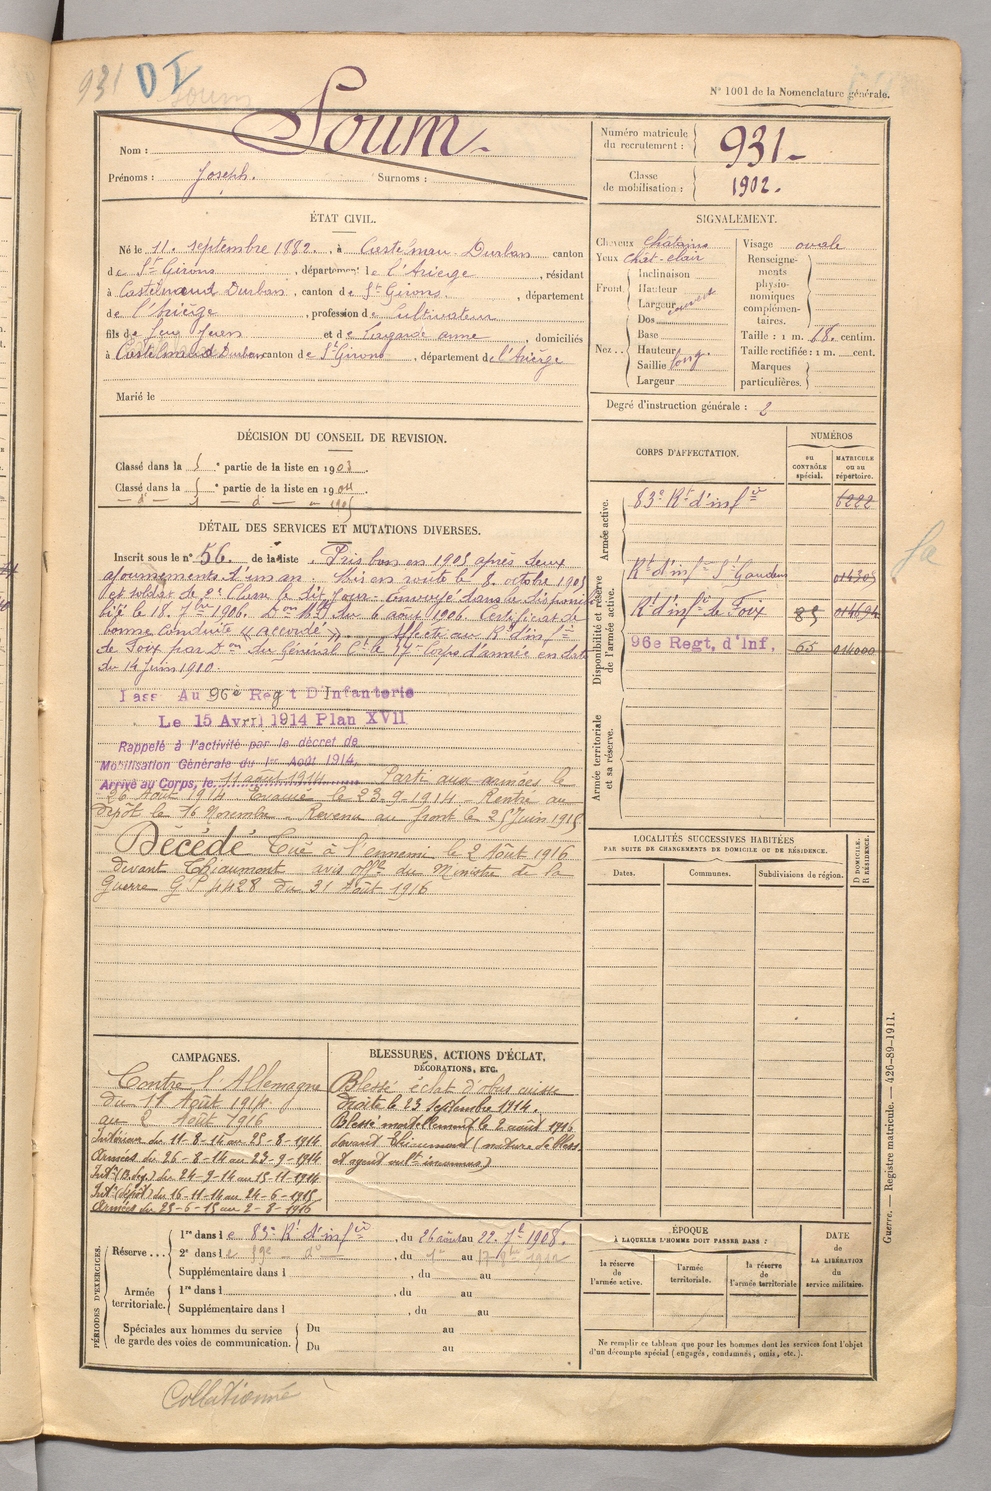 931 DI
Soum
N° 1001 de la Nomenclature générale.
Nom : Soum
Prénoms : Joseph. Surnoms :
Numéro matricule du recrutement : 931
Classe de mobilisation : 1902.
ÉTAT CIVIL.
Né le 11. septembre 1882. , à Castelnau-Durban canton
de St Girons , département de l'Ariège , résidant
à Castelnaud Durban , canton de St Girons , département
de l'Ariège , profession de Cultivateur
fils de feu Jean et de Lagarde anne , domiciliés
à Castelnaud Durban canton de St Girons , département de l'Ariège
Marié le
SIGNALEMENT.
Cheveux châtains
Yeux chât-clair
Front. Inclinaison
Hauteur
Largeur couvert
Dos
Nez... Base
Hauteur
Saillie long.
Largeur
Visage ovale
Renseignements physionomiques complémentaires.
Taille : 1 m. 68. centim.
Taille rectifiée : 1 m. cent.
Marques particulières.
Degré d'instruction générale : 2
DÉCISION DU CONSEIL DE REVISION.
Classé dans la ° partie de la liste en 1903.
Classé dans la ° partie de la liste en 1904.
— d° — — d — — 1905
DÉTAIL DES SERVICES ET MUTATIONS DIVERSES.
Inscrit sous le n° 56. de la liste . Pris bon en 1905 après deux
ajournements d'un an. Mis en route le 8. octobre 1905
et soldat de 2e Classe le dit jour - envoyé dans la disponibi-
lité le 18. 7bre 1906. Don Mlle du 6 août 1906. Certificat de
bonne conduite "accordé". Affecté au Rt d'infie
de Foix par Don du Général Ct le 17e Corps d'armée en date
du 14 juin 1910.
Passé Au 96e Regt D'Infanterie
Le 15 Avril 1914 Plan XVII
Rappelé à l'activité par le décret de
Mobilisation Générale du 1er Août 1914.
Arrivé au Corps, le 11 août 1914 Parti aux armées le
26 Août 1914 Evacué le 23-9-1914 - Rentré au
dépôt le 16 Novembre - Revenu au front le 25 Juin 1915
Décédé Tué à l'ennemi le 2 Août 1916
devant Thiaumont avis offel du Ministre de la
Guerre GP 4428 du 31 Août 1916
CORPS D'AFFECTATION.
NUMÉROS
au CONTRÔLE spécial.
MATRICULE ou au répertoire.
Armée active.
83e Rt d'infie 6222
Disponibilité et réserve de l'armée active.
Rt d'infie St Gaudens 01430
Rt d'infie de Foix 85 014694
96e Regt, d'Inf. 65 014000
Armée territoriale et sa réserve.
LOCALITÉS SUCCESSIVES HABITÉES
PAR SUITE DE CHANGEMENTS DE DOMICILE OU DE RÉSIDENCE.
Dates. Communes. Subdivisions de région.
D DOMICILE. R RÉSIDENCE.
CAMPAGNES.
Contre l'Allemagne
du 11 Août 1914
au 2 Août 1916
Intérieur du 11-8-14 au 25-8-1914
Armées du 26-8-14 au 23-9-1914
Intr (B. ég.) du 24-9-14 au 15-11-1914
Intr (dépôt) du 16-11-14 au 24-6-1915
Armées du 25-6-15 au 2-8-1916
BLESSURES, ACTIONS D'ÉCLAT,
DÉCORATIONS, ETC.
Blessé éclat d'obus cuisse
droite le 23 septembre 1914.
Blessé mortellement le 2 août 1916
devant Thiaumont (nature de bless.
et agent vulnt inconnus)
PÉRIODES D'EXERCICES.
Réserve... 1re dans le 83e Rt d'infie , du 26 août au 22. 7bre 1908.
2e dans le 59e — d° — , du 1er au 17 1910
Supplémentaire dans l , du au
Armée territoriale. 1re dans l , du au
Supplémentaire dans l , du au
Spéciales aux hommes du service de garde des voies de communication. Du au
Du au
ÉPOQUE
À LAQUELLE L'HOMME DOIT PASSER DANS :
la réserve de l'armée active. l'armée territoriale. la réserve de l'armée territoriale
DATE de LA LIBÉRATION du service militaire.
Ne remplir ce tableau que pour les hommes dont les services font l'objet
d'un décompte spécial (engagés, condamnés, omis, etc.).
Guerre. — Registre matricule. — 426-89-1911.
Collationné